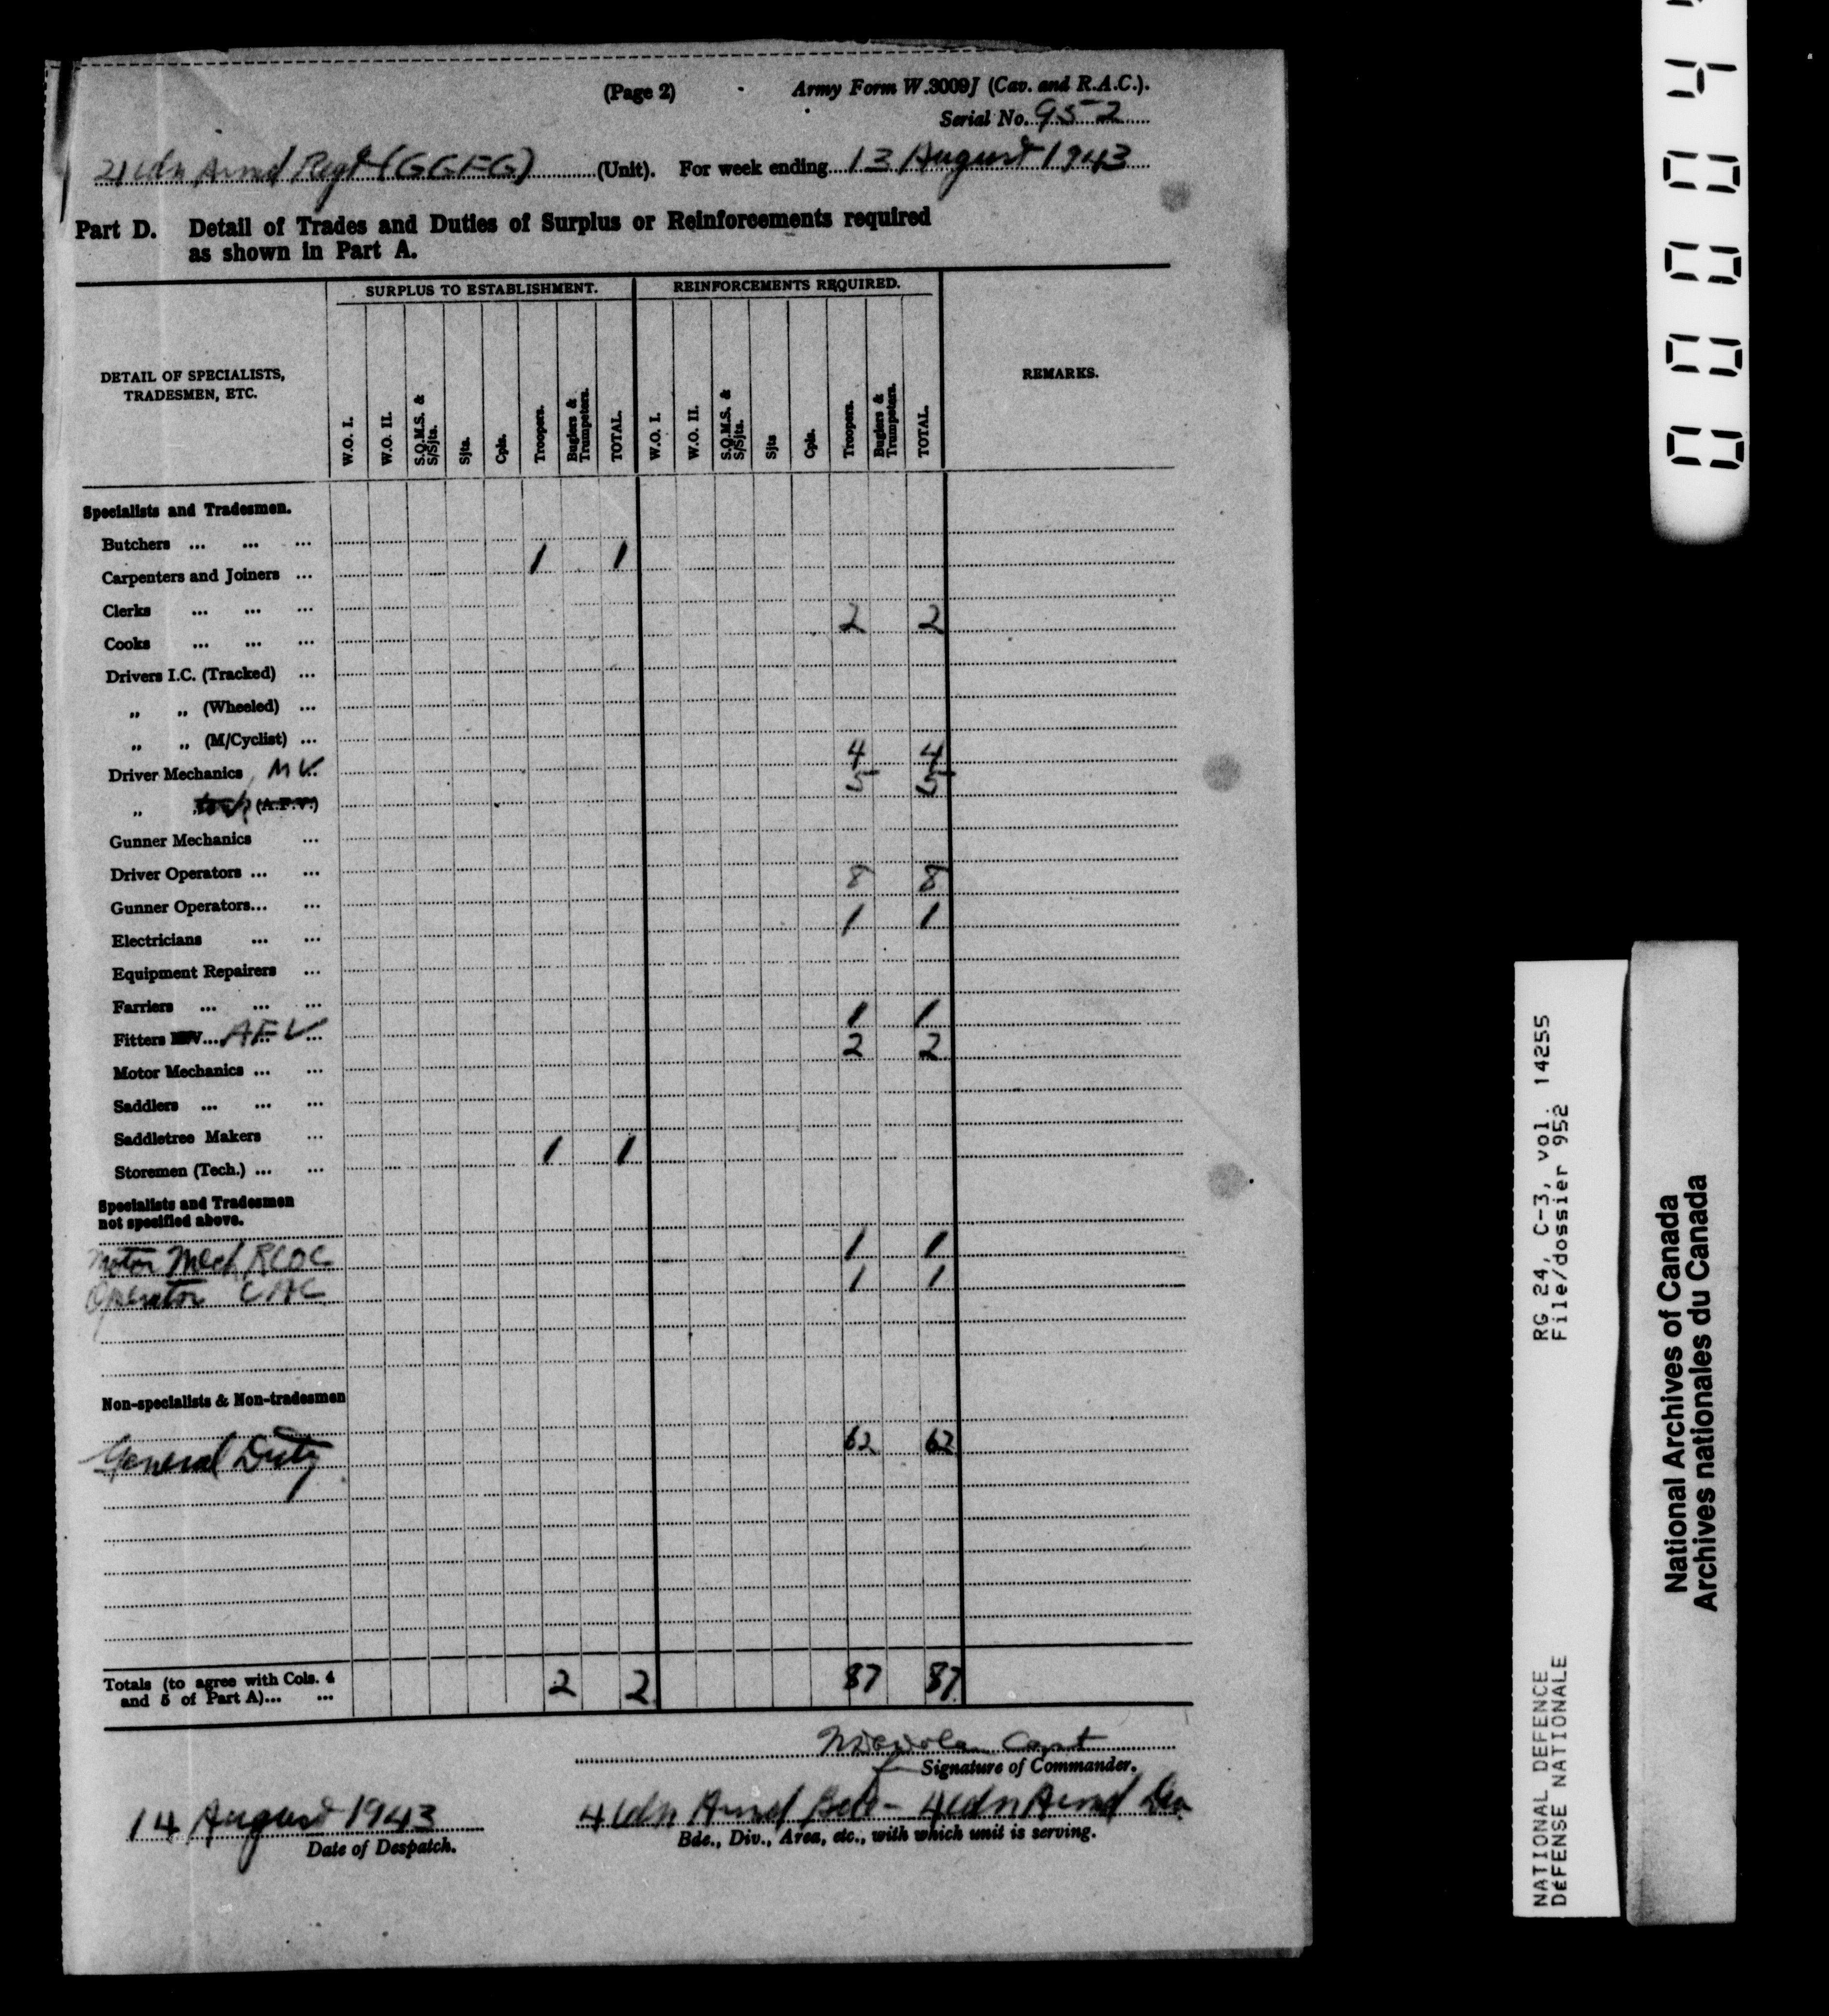 (Page 2) Army Form W.3009J (Cav. and R.A.C.).
Serial No. 952
21 Cdn Armd Regt (GGFG) (Unit). For week ending 13 August 1943
Part D. Detail of Trades and Duties of Surplus or Reinforcements required
as shown in Part A.
DETAIL OF SPECIALISTS, TRADESMEN, ETC.
SURPLUS TO ESTABLISHMENT. REINFORCEMENTS REQUIRED. REMARKS.
W.O. I. W.O. II. S.Q.M.S. & S/Sjts. Sjts. Cpls. Troopers. Buglers & Trumpeters. TOTAL. W.O. I. W.O. II. S.Q.M.S. & S/Sjts. Sjts Cpls. Troopers. Buglers & Trumpeters. TOTAL.
Specialists and Tradesmen.
Butchers ... ... ...
Carpenters and Joiners ... 1 1
Clerks ... ... ...
Cooks ... ... ... 2 2
Drivers I.C. (Tracked) ...
„ „ (Wheeled) ...
„ „ (M/Cyclist) ...
Driver Mechanics MV 4 4
„ (A.F.V.) 5 5
Gunner Mechanics ...
Driver Operators ... ...
Gunner Operators... ... 8 8
Electricians ... ... 1 1
Equipment Repairers ...
Farriers ... ... ...
Fitters MV... AFV ... 1 1
Motor Mechanics ... ... 2 2
Saddlers ... ... ...
Saddletree Makers ...
Storemen (Tech.) ... ... 1 1
Specialists and Tradesmen
not specified above.
Motor Mech RCOC 1 1
Operator CAC 1 1
Non-specialists & Non-tradesmen
General Duty 62 62
Totals (to agree with Cols. 4
and 5 of Part A)... ... 2 2 87 87
Capt
Signature of Commander.
14 August 1943 4 Cdn Armd Bde - 4 Cdn Armd Div
Date of Despatch. Bde., Div., Area, etc., with which unit is serving.
RG 24, C-3, vol. 14255
File/dossier 952
NATIONAL DEFENCE
DÉFENSE NATIONALE
National Archives of Canada
Archives nationales du Canada